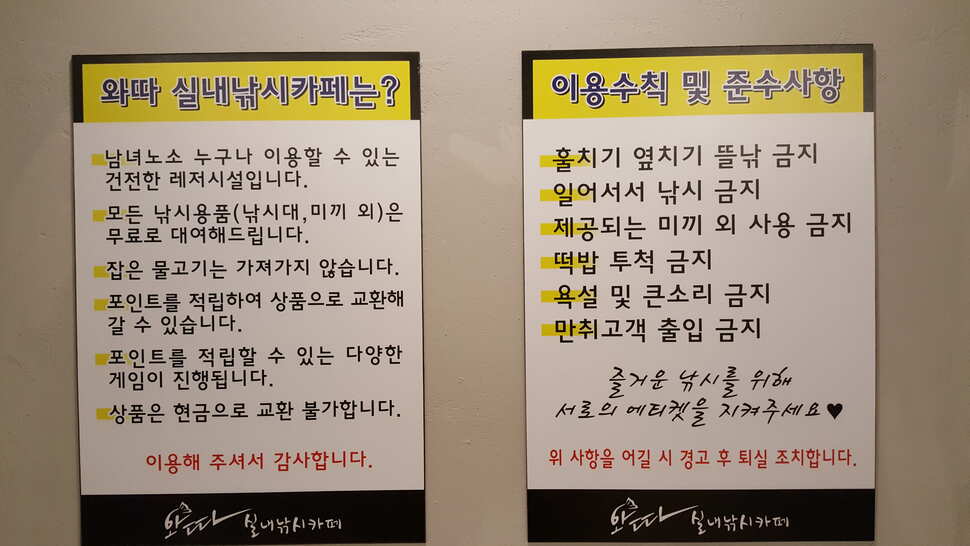 와따 실내낚시카페는?
남녀노소 누구나 이용할 수 있는
건전한 레저시설입니다.
모든 낚시용품(낚시대,미끼 외)은
무료로 대여해드립니다.
잡은 물고기는 가져가지 않습니다.
포인트를 적립하여 상품으로 교환해
갈 수 있습니다.
포인트를 적립할 수 있는 다양한
게임이 진행됩니다.
상품은 현금으로 교환 불가합니다.
이용해 주셔서 감사합니다.
와따 실내낚시카페
이용수칙 및 준수사항
훌치기 옆치기 뜰낚 금지
일어서서 낚시 금지
제공되는 미끼 외 사용 금지
떡밥 투척 금지
욕설 및 큰소리 금지
만취고객 출입 금지
즐거운 낚시를 위해
서로의 에티켓을 지켜주세요♥
위 사항을 어길 시 경고 후 퇴실 조치합니다.
와따 실내낚시카페